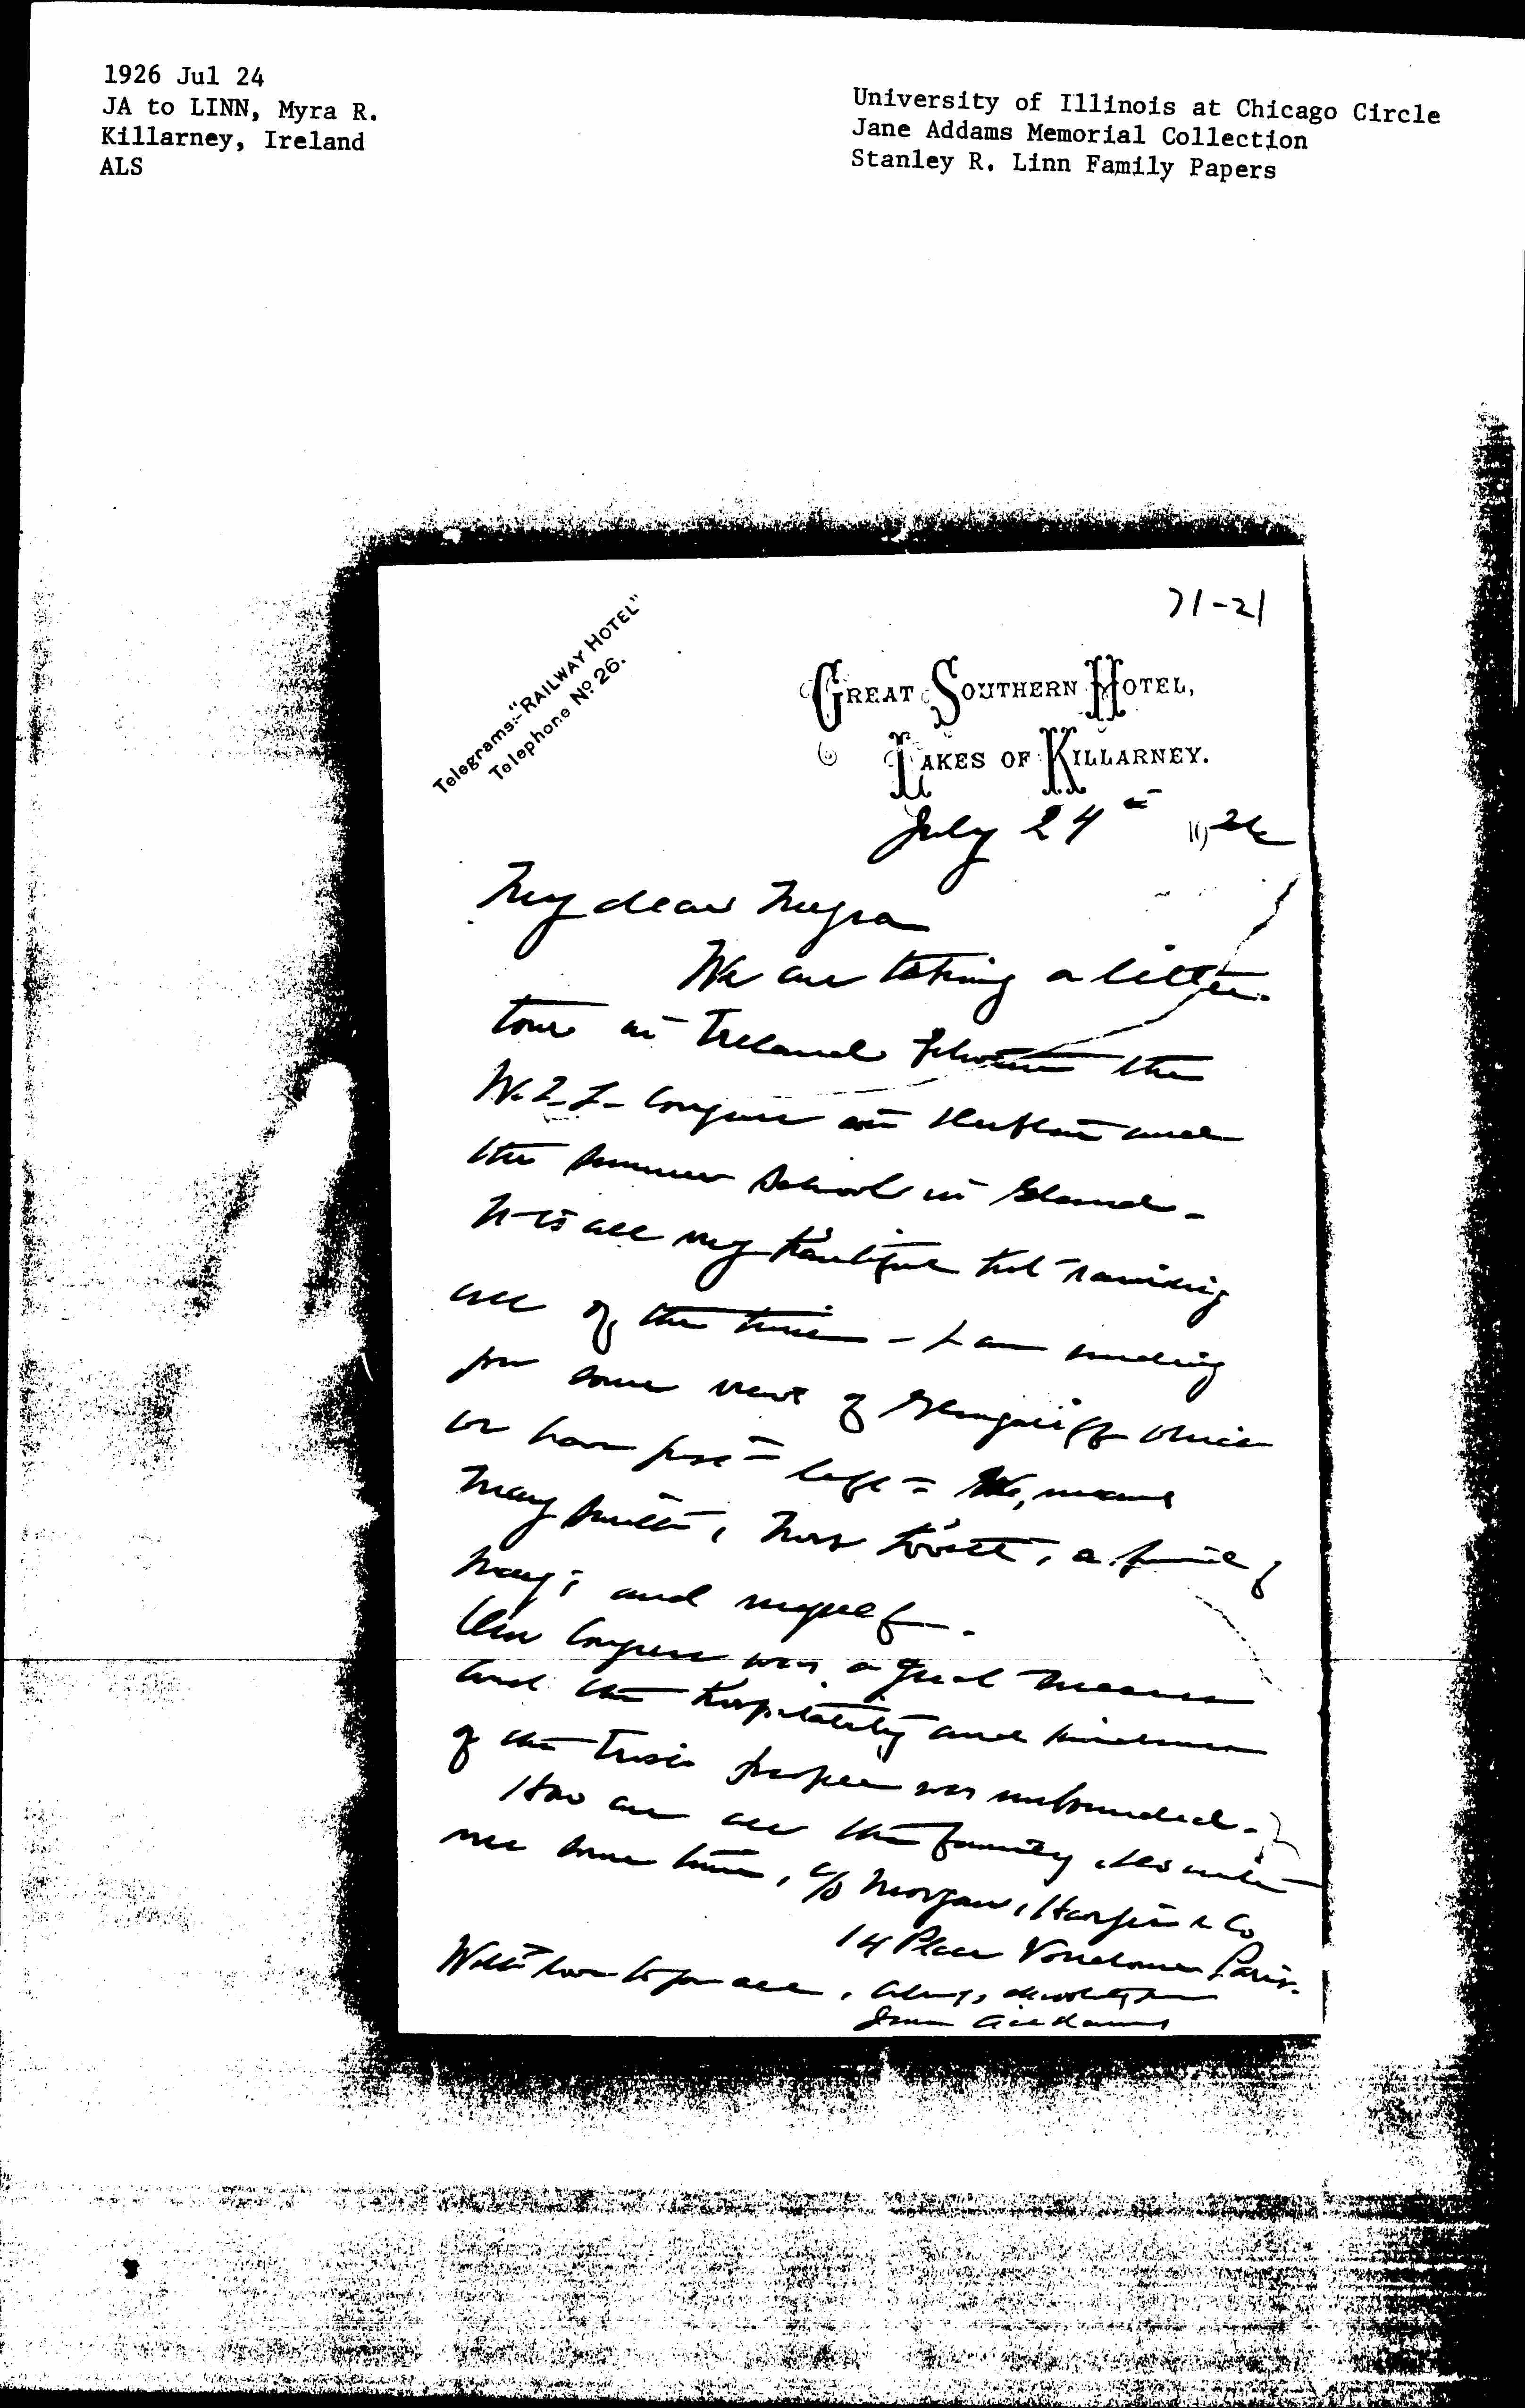 1926 Jul 24
JA to LINN, Myra R.
Killarney, Ireland
ALS
University of Illinois at Chicago Circle
Jane Addams Memorial Collection
Stanley R. Linn Family Papers
71-21
Telegrams:- "RAILWAY HOTEL"
Telephone No. 26.
GREAT SOUTHERN HOTEL,
LAKES OF KILLARNEY.
July 24" 1926
My dear Myra
We are taking a little
tour in Ireland between the
W.I.L. Congress in Dublin and
the summer school in
It is all very beautiful but raining
all of the time - I am sending
you some views of Glengariff which
we have just left - We, means
May Smith, Miss, a friend of
May's and myself.
Our Congress was a great success
and the hospitality and kindness
of the Irish people was unbounded.
How are all the family, do write
me some time, c/o Morgan, Harjes & Co
14 Place Vendome Paris.
With love to you all, always devotedly yours
Jane Addams